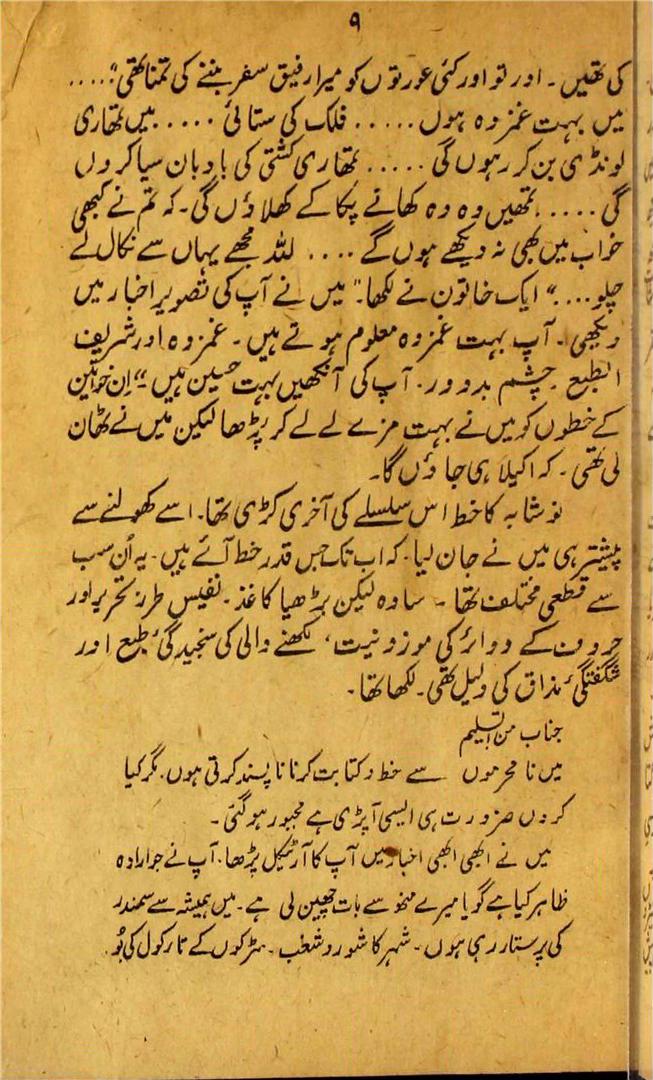 ۹
کی تھیں۔ اور تو اور کئی عورتوں کو میرا رفیق سفر بننے کی تمنا تھی:"....
میں بہت غمزدہ ہوں ..... فلک کی ستائی ..... میں تمھاری
لونڈی بن کر رہوں گی ..... تمھاری کشتی کی بادبان سیا کروں
گی ..... تمھیں وہ وہ کھانے پکا کے کھلاؤں گی۔ کہ تم نے کبھی
خواب میں بھی نہ دیکھے ہوں گے .... للّٰہ مجھے یہاں سے نکال لے
چلو ...." ایک خاتون نے لکھا۔" میں نے آپ کی تصویر اخبار میں
دیکھی۔ آپ بہت غمزدہ معلوم ہوتے ہیں۔ غمزدہ اور شریف
الطبع۔ چشم بددور۔ آپ کی آنکھیں بہت حسین ہیں۔" اِن خواتین
کے خطوں کو میں نے بہت مزے لے لے کر پڑھا لیکن میں نے ٹھان
لی تھی۔ کہ اکیلا ہی جاؤں گا۔
نوشابہ کا خط اس سلسلے کی آخری کڑی تھا۔ اسے کھولنے سے
پیشتر ہی میں نے جان لیا۔ کہ اب تک جس قدر خط آئے ہیں۔ یہ اُن سب
سے قطعی مختلف تھا۔ سادہ لیکن بڑھیا کاغذ۔ نفیس طرز تحریر اور
حروف کے دوائر کی موزونیت، لکھنے والی کی سنجیدگیٔ طبع اور
شگفتگیٔ مذاق کی دلیل تھی۔ لکھا تھا۔
جناب من! تسلیم
میں نامحرموں سے خط و کتابت کرنا ناپسند کرتی ہوں۔ مگر کیا
کروں ضرورت ہی ایسی آپڑی ہے مجبور ہوگئی۔
میں نے ابھی ابھی اخبار میں آپ کا آرٹیکل پڑھا۔ آپ نے جو ارادہ
ظاہر کیا ہے گویا میرے منھ سے بات چھین لی ہے۔ میں ہمیشہ سے سمندر
کی پرستار رہی ہوں۔ شہر کا شور و شغب۔ سڑکوں کے تارکول کی بُو